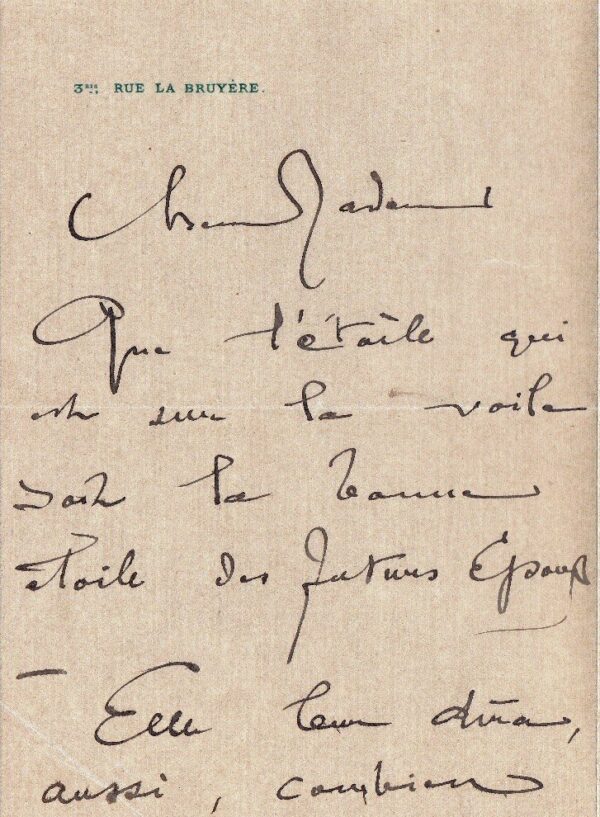 3BIS, RUE LA BRUYÈRE.
Chère Madame
Que l'étoile qui
est sur la voile
soit la bonne
étoile des futurs Époux
— Elle leur dira,
aussi, combien